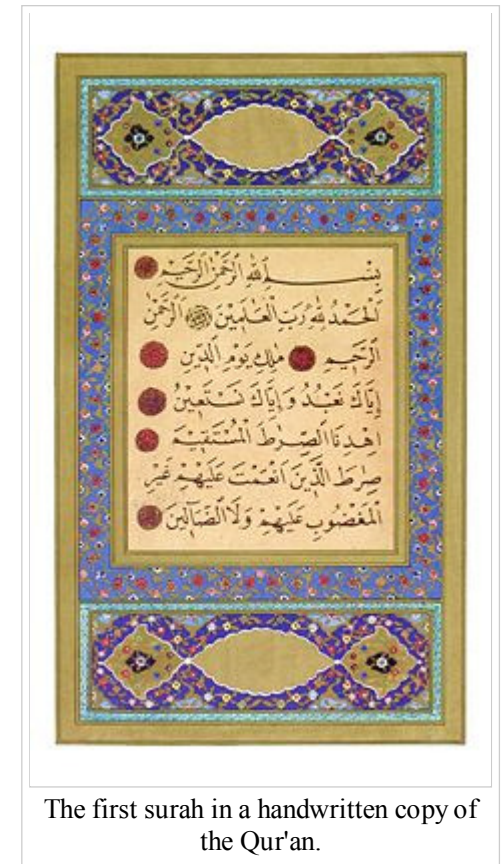 بِسْمِ اللهِ الرَّحْمٰنِ الرَّحِيْمِ
اَلْحَمْدُ لِلّٰهِ رَبِّ الْعَالَمِيْنَ الرَّحْمٰنِ
الرَّحِيْمِ مٰلِكِ يَوْمِ الدِّيْنِ
اِيَّاكَ نَعْبُدُ وَاِيَّاكَ نَسْتَعِيْنُ
اِهْدِنَا الصِّرٰطَ الْمُسْتَقِيْمَ
صِرٰطَ الَّذِيْنَ اَنْعَمْتَ عَلَيْهِمْ غَيْرِ
الْمَغْضُوْبِ عَلَيْهِمْ وَلَا الضَّآلِّيْنَ
The first surah in a handwritten copy of
the Qur'an.